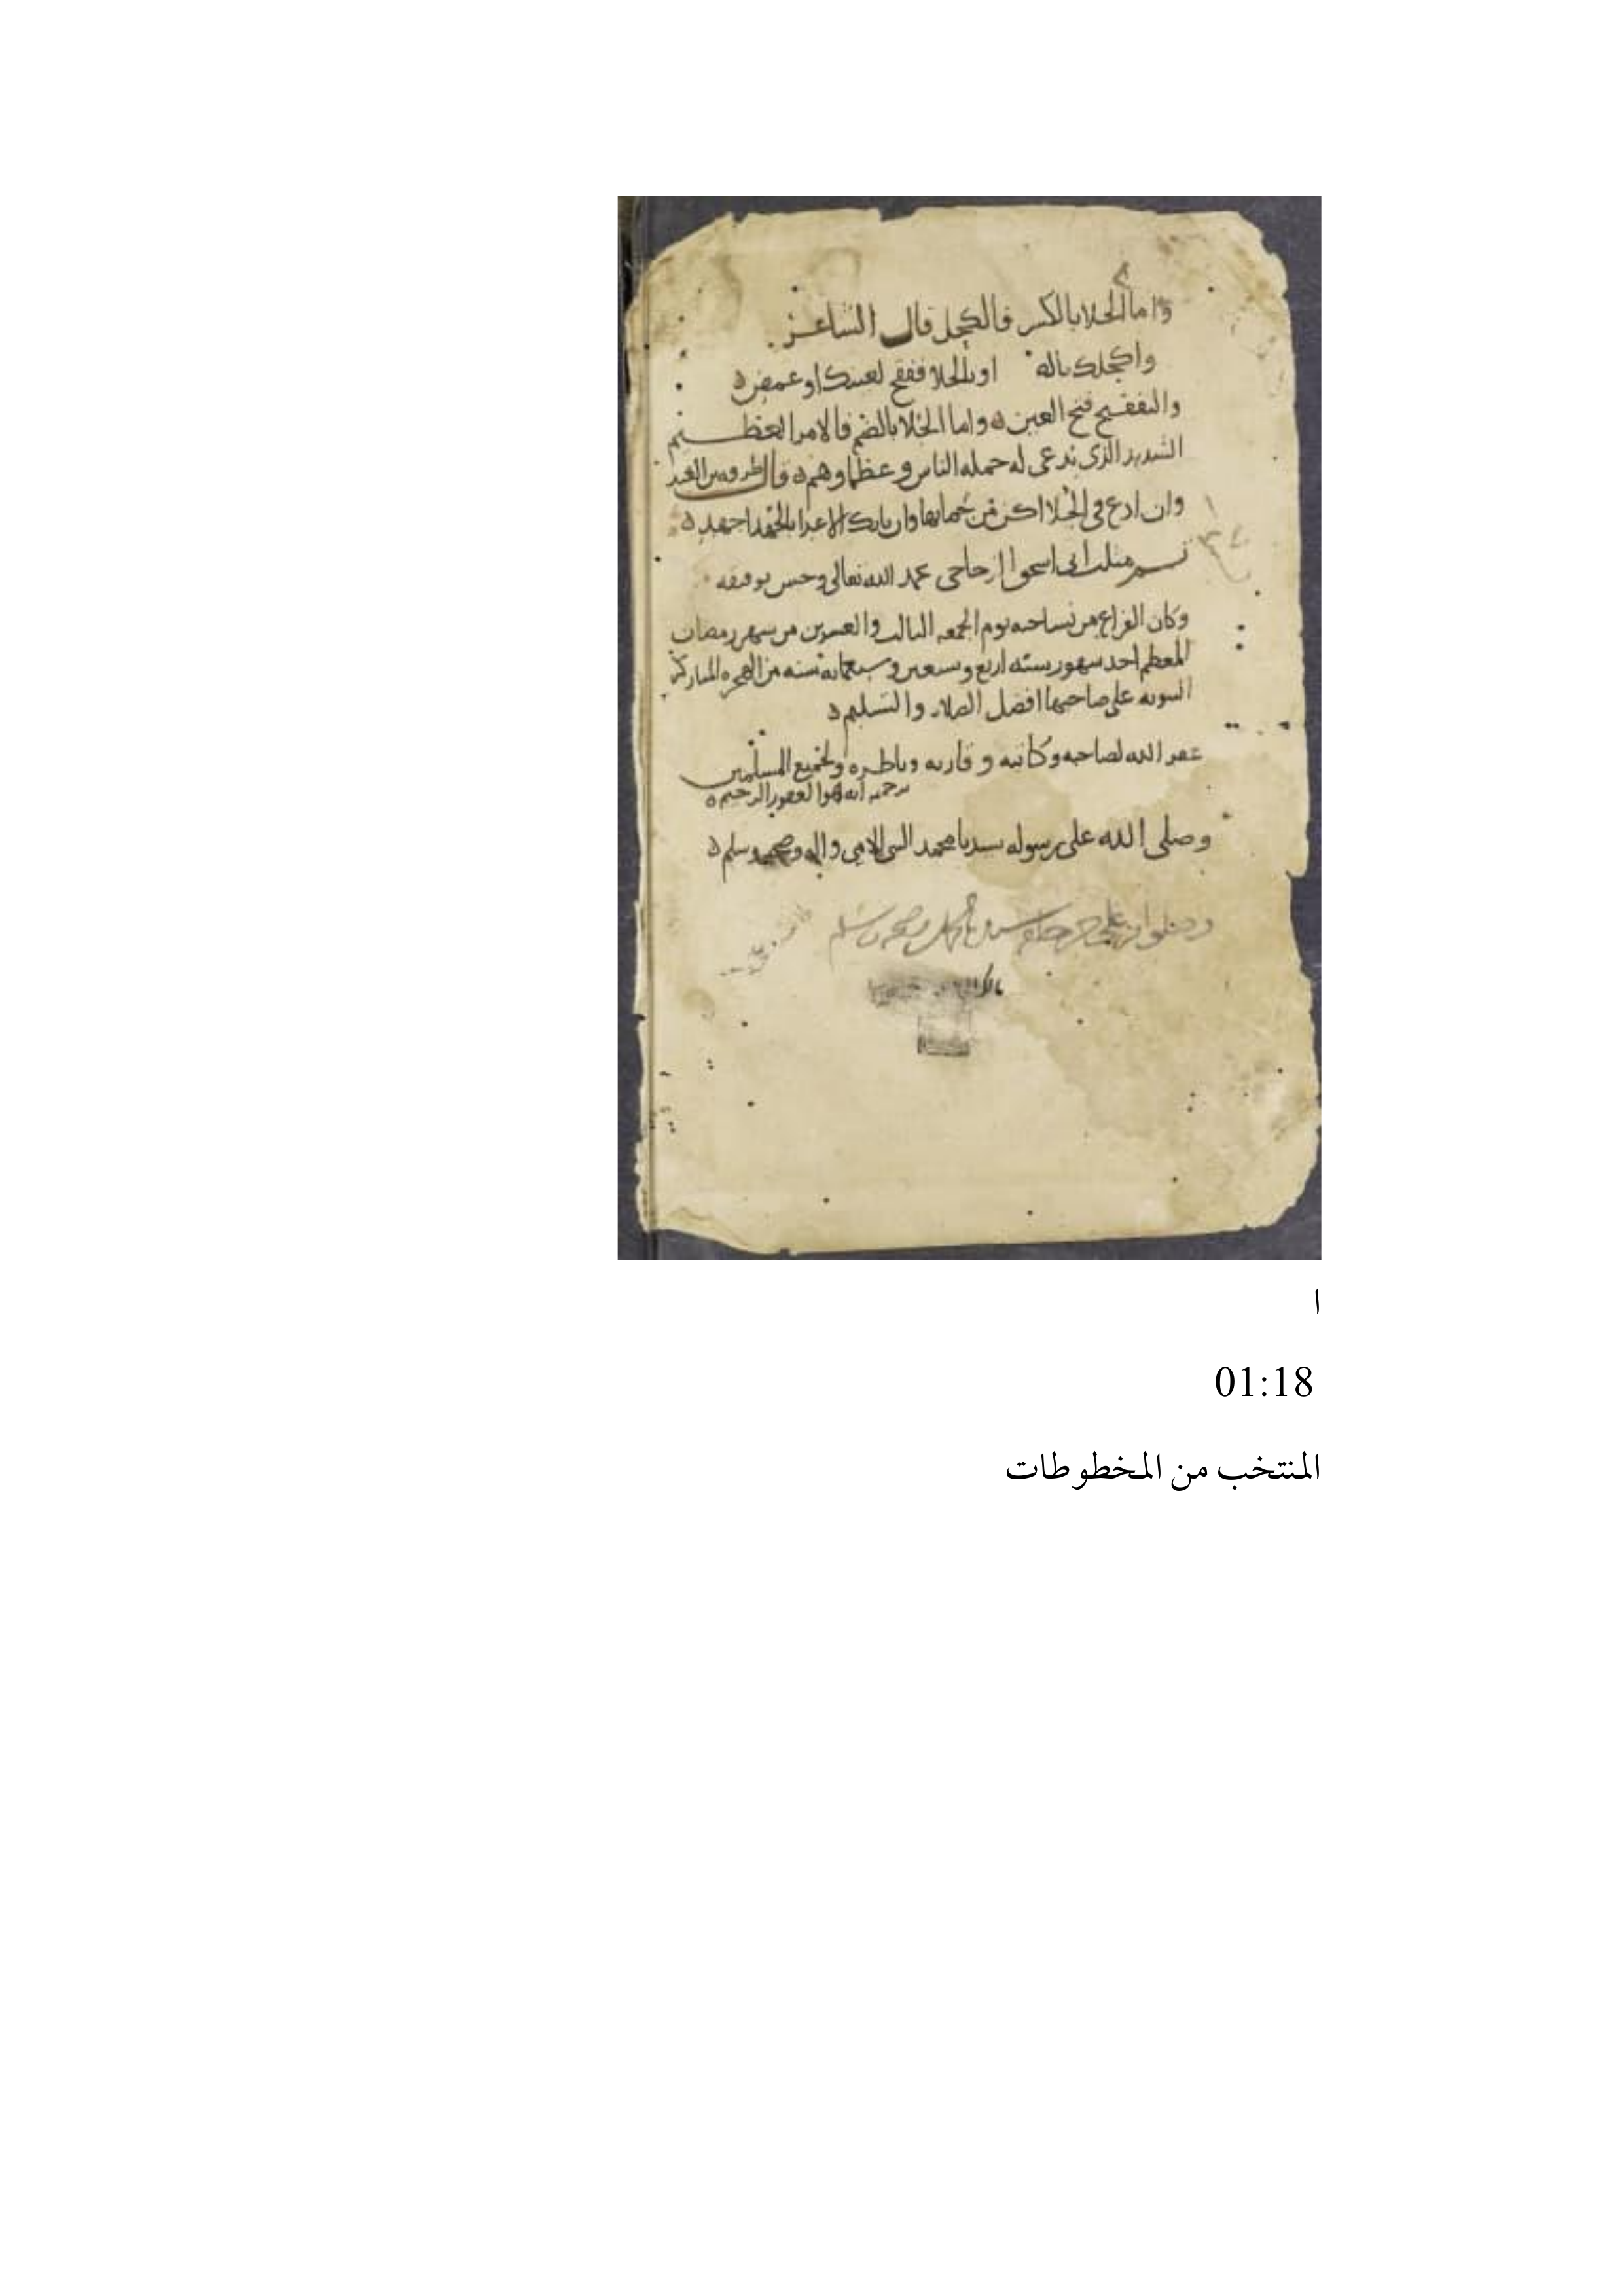 واما الجلا بالكسر فالكحل قال الشاعر
واكحلك بالصاب او بالجلا ففقح لعينك او غمض
والتفقيح فتح العين واما الجلا بالضم فالامر العظيم
الشديد الذي يدعى له جملة الناس وعظماوهم قال طرفه بن العبد
وان ادع في الجلا اكن من حماتها وان ياتك الاعدا بالجهد اجهد
تم مثلث ابي اسحق الزجاجي بحمد الله تعالى وحسن توفيقه
وكان الفراغ من نساخته يوم الجمعه الثالث والعشرين من شهر رمضان
المعظم احد شهور سنه اربع وسبعمايه سنه من الهجره المباركه
النبويه على صاحبها افضل الصلاه والتسليم
غفر الله لصاحبه وكاتبه وقاريه وناظره ولجميع المسلمين
برحمته انه هو الغفور الرحيم
وصلى الله على رسوله سيدنا محمد النبي الامي واله وصحبه وسلم
ا
01:18
المنتخب من المخطوطات